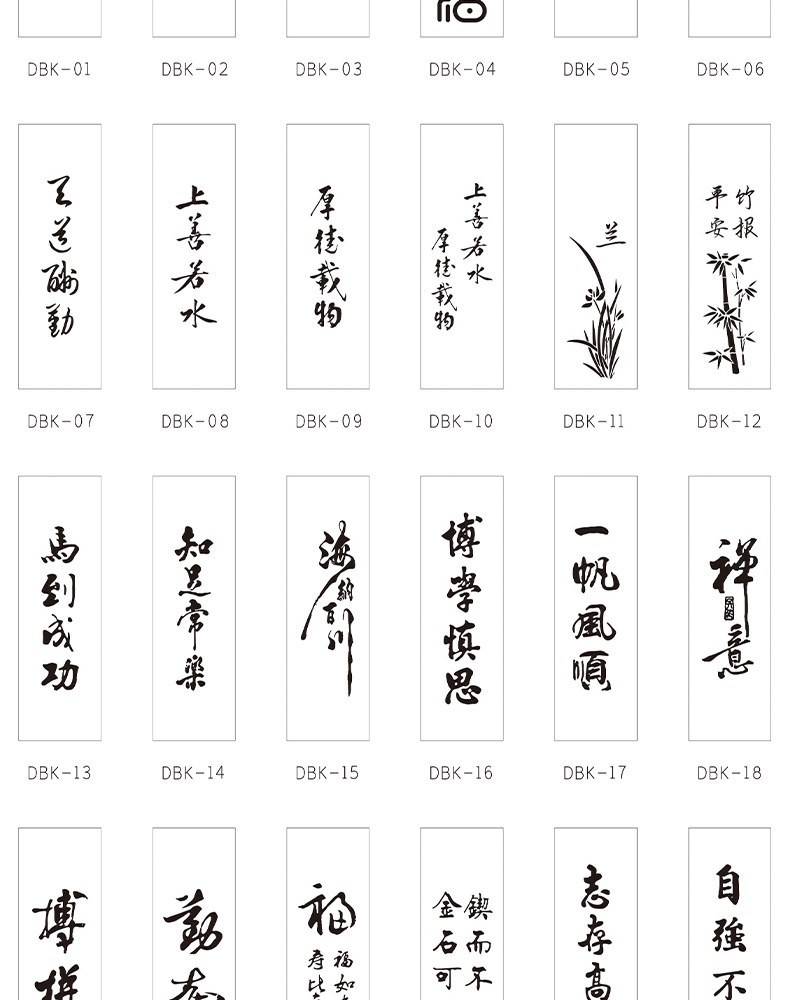 DBK-01 DBK-02 DBK-03 DBK-04 DBK-05 DBK-06
天道酬勤
上善若水
厚德載物
上善若水
厚德載物
兰
竹报
平安
DBK-07 DBK-08 DBK-09 DBK-10 DBK-11 DBK-12
馬到成功
知足常樂
海納百川
博學慎思
一帆風順
禅意
DBK-13 DBK-14 DBK-15 DBK-16 DBK-17 DBK-18
搏拼
勤
福
福如
寿比
鍥而不
金石可
志存高
自強不